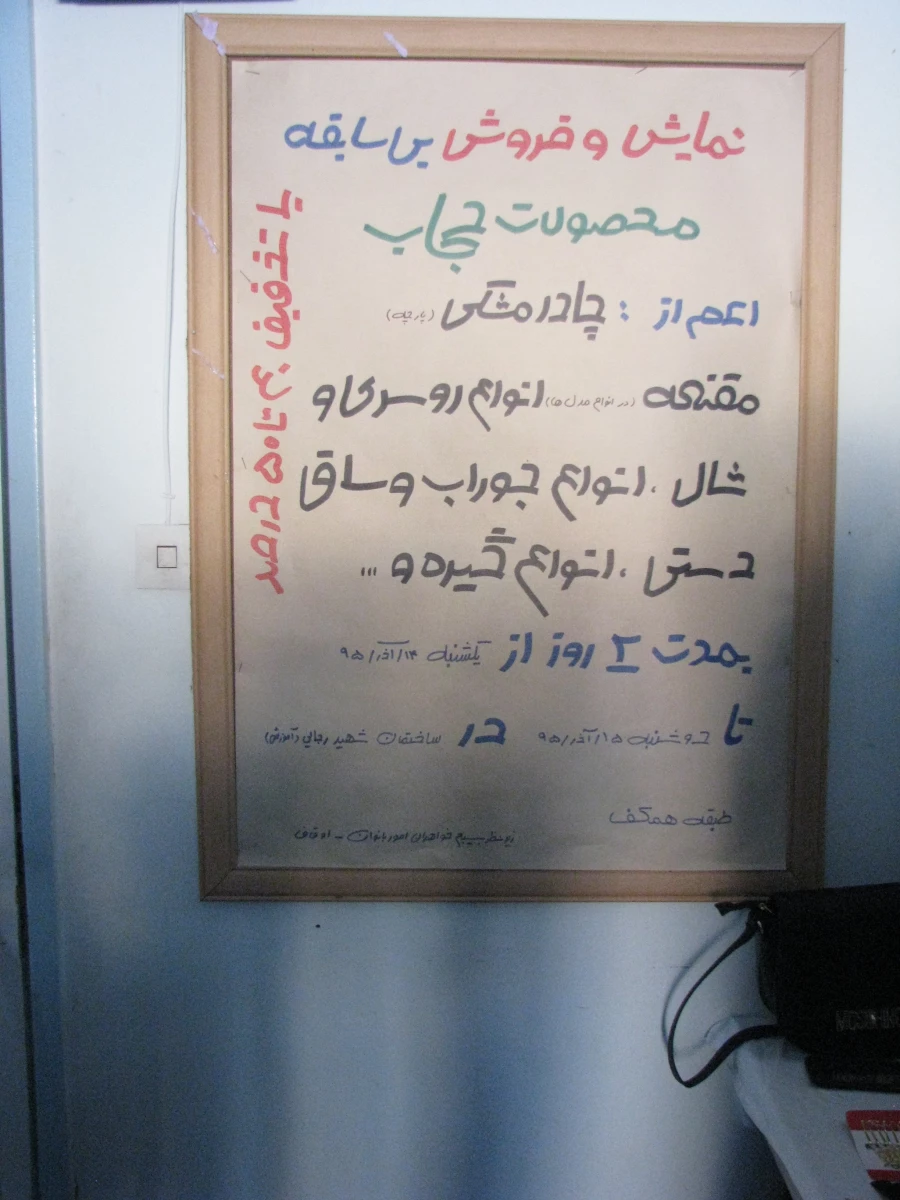 نمایش و فروش بی سابقه
محصولات حجاب
اعم از : چادر مشکی (پارچه)
مقنعه (در انواع مدل ها) انواع روسری و
شال ، انواع جوراب و ساق
دستی ، انواع گیره و ...
بمدت ۲ روز از یکشنبه ۱۴/آذر/۹۵
تا دوشنبه ۱۵/آذر/۹۵ در ساختمان شهید رجائی (آموزش)
طبقه همکف
زیر نظر بسیج خواهران امور بانوان - اوقاف
با تخفیف ۴۰ تا ۵۰ درصد